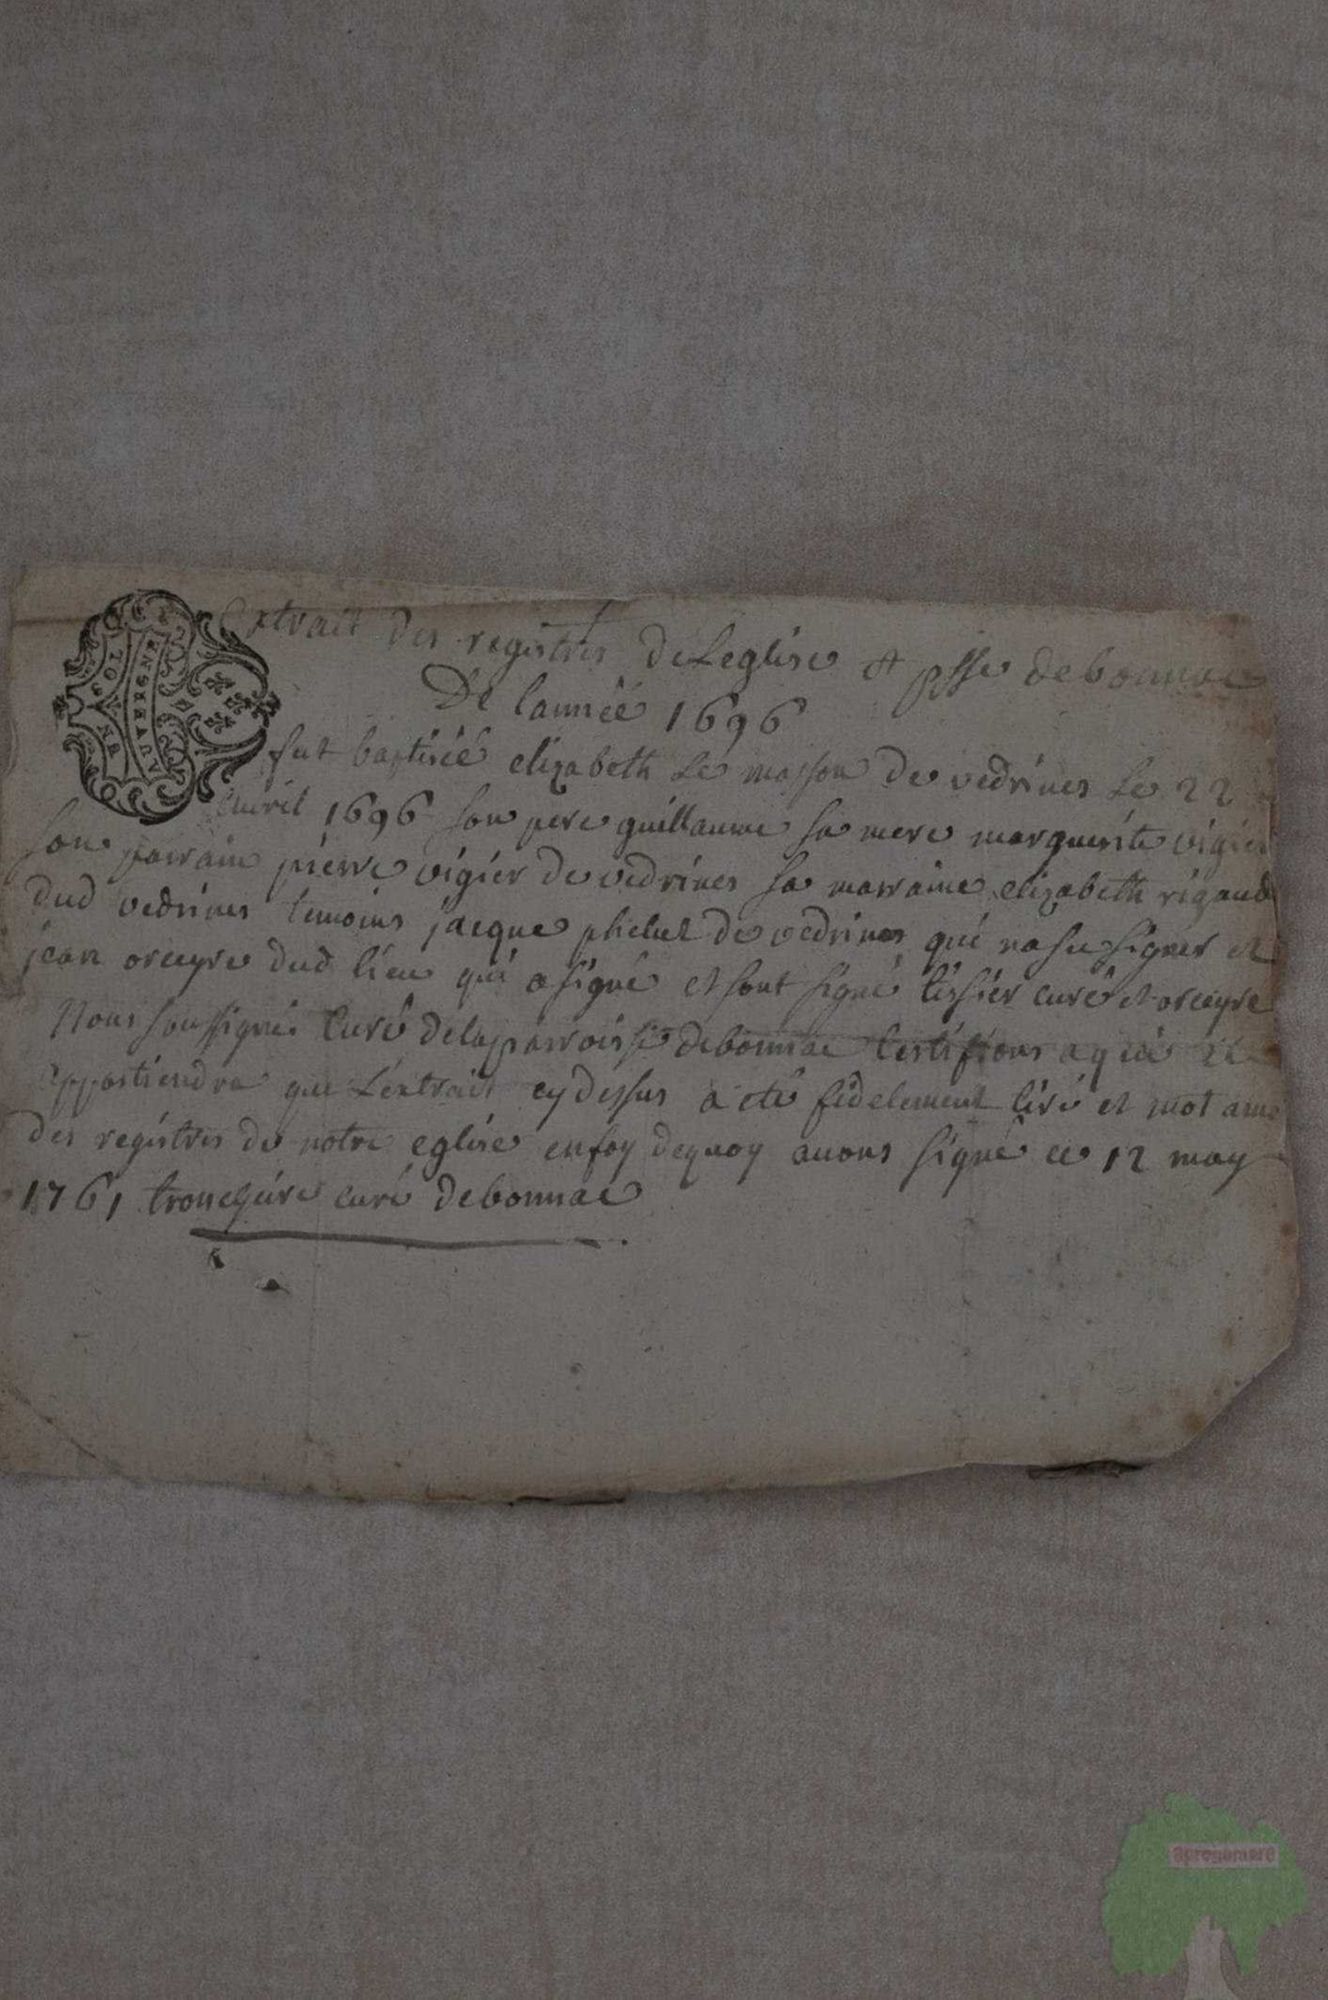 Extrait des registres de Leglise et psse de bonnac
De lannéé 1696
fut baptiséé elizabeth Le masson de vedrines Le 22
auril 1696 son pere guillaume sa mere marguerite vigier
son parrain pierre vigier de vedrines sa marraine elizabeth rigaud
dud vedrines temoins jacque phelut de vedrines qui na su signer et
jean orceyre dud lieu qui a signé et sont signé tissier curé et orceyre
Nous soussigné Curé de la parroisse de bonnac Certifions a qui il
appartiendra que Léxtrait cy dessus a eté fidelement tiré et mot a mo
des registres de notre eglise en foy de quoy auons signé ce 12 may
1761 tronchére curé de bonnac
GÉN
COL
AUVERGNE
apregemere